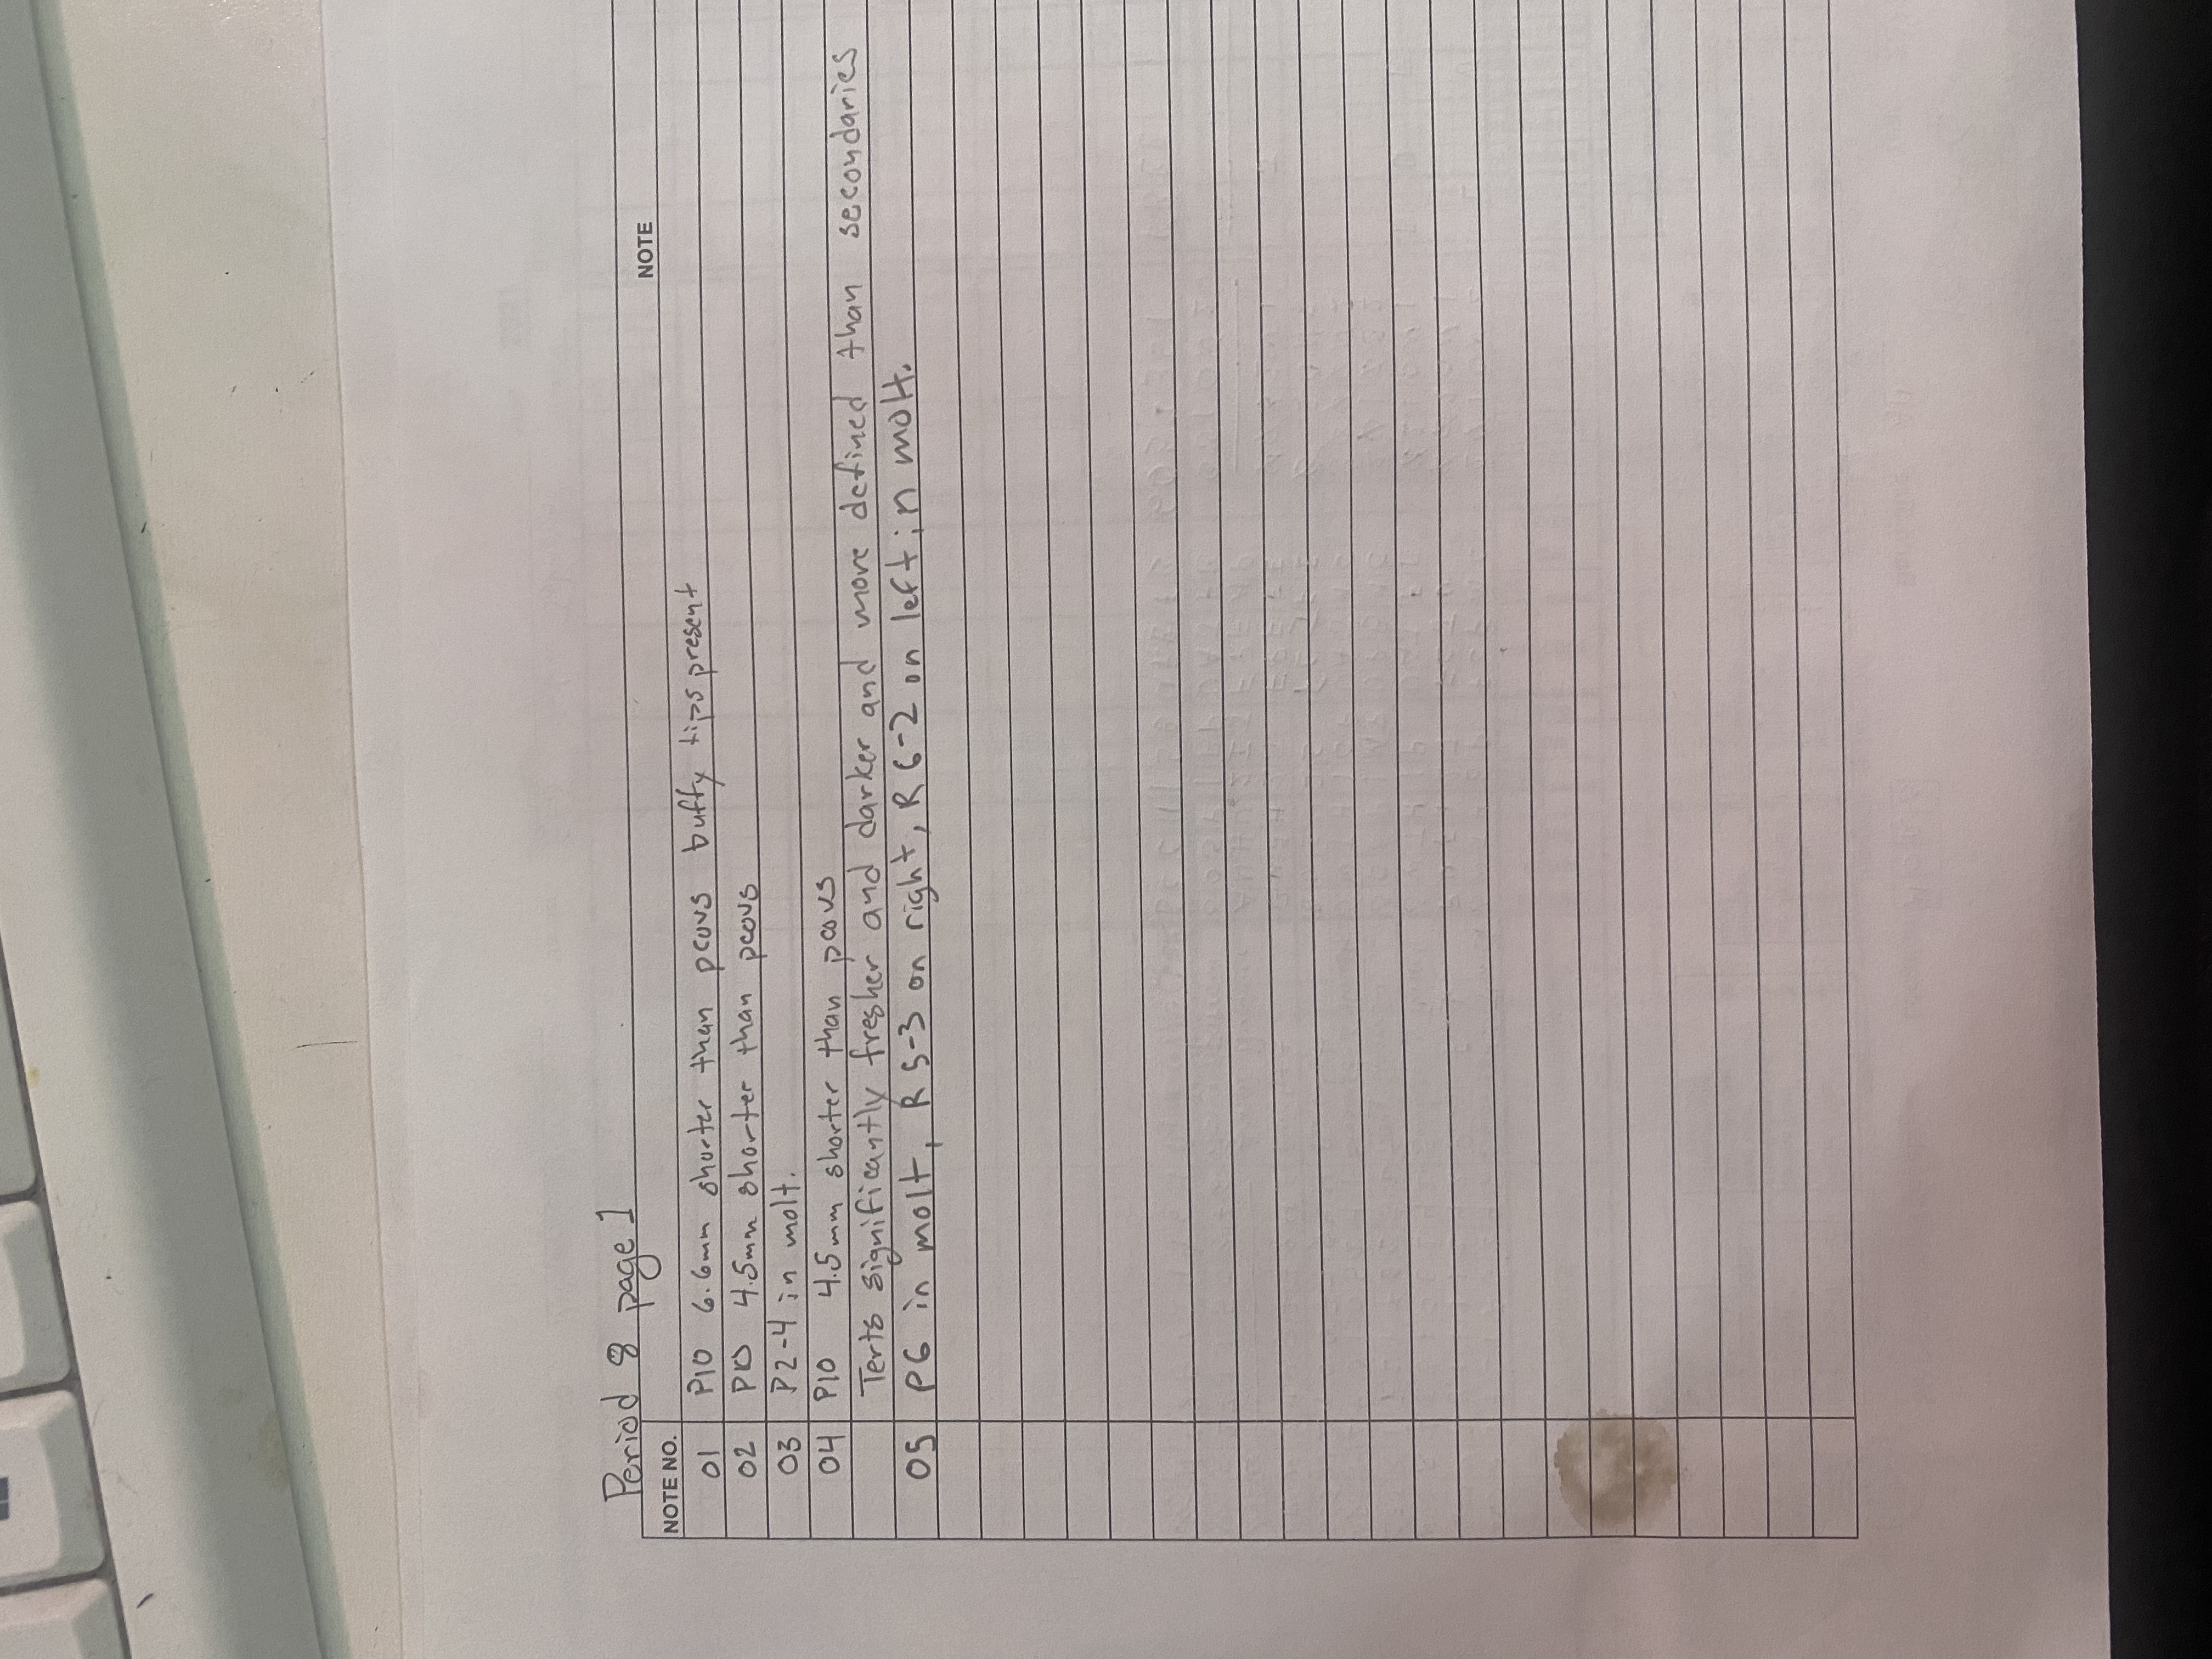 Period 8 page 1
NOTE NO. NOTE
01 P10 6.6mm shorter than pcovs buffy tips present
02 P10 4.5mm shorter than pcovs
03 P2-4 in molt.
04 P10 4.5mm shorter than pcovs
Terts significantly fresher and darker and more defined than secondaries
05 P6 in molt, R5-3 on right, R6-2 on left in molt.